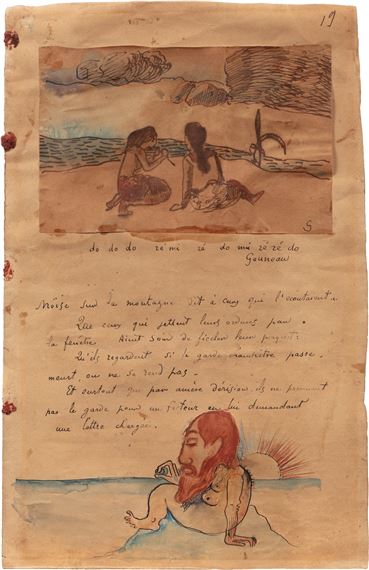 19
G
do do do ré mi ré do mi ré ré do
Gounod
Moïse sur la montagne dit à ceux que l'écoutaient :
Que ceux qui jettent leurs ordures par
la fenêtre Aient soin de ficeler leur paquet :
Qu'ils regardent si le garde champêtre passe.
meurt, ou ne se rend pas.
Et surtout que par amère dérision ils ne prennent
pas le garde pour un facteur en lui demandant
une lettre chargée.